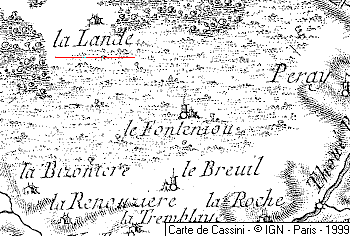 la Lande
Peray
le Fonteniou
la Bizoniere
le Breuil
la Renouziere
la Roche
la Tremblaye
Carte de Cassini - © IGN - Paris - 1999